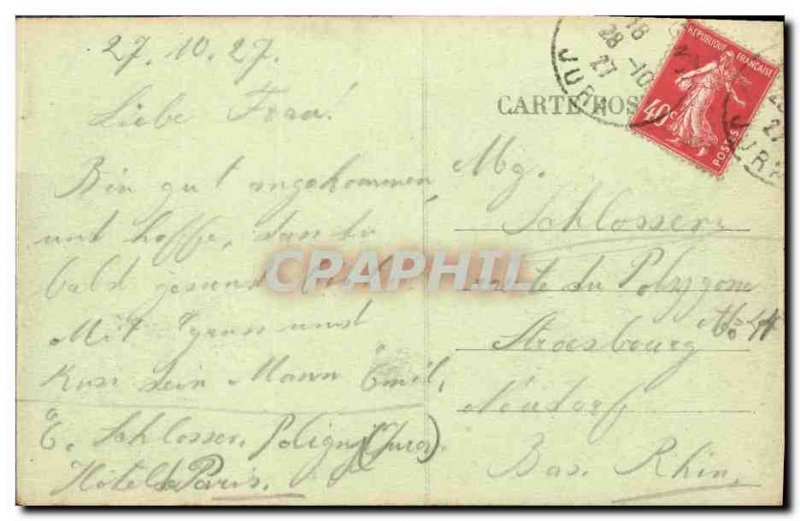 27.10.27.
Liebe Frau!
Bin gut angekommen,
und hoffe, dass du
bald gesund
Mit Gruss und
Kuss dein Mann Emil.
E. Schlosser, Poligny (Jura).
Hôtel de Paris.
CARTE POS
RÉPUBLIQUE FRANÇAISE
40c
POSTES
18
28-10
27
JURA
27
JURA
Mg.
Schlosser
du Polygone
Strasbourg
Neudorf
Bas. Rhin.
CPAPHIL